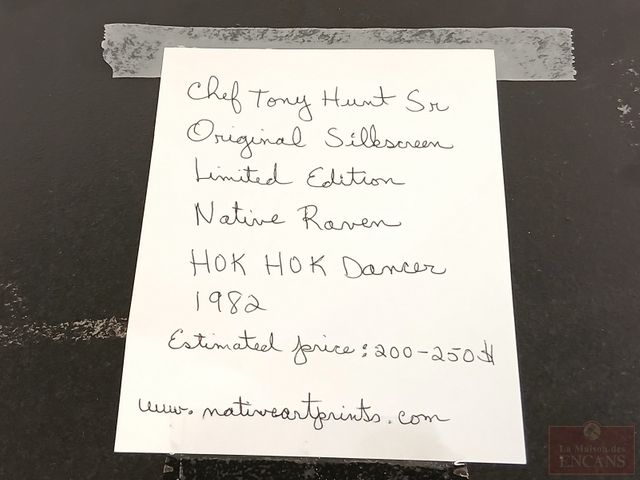 Chef Tony Hunt Sr
Original Silkscreen
Limited Edition
Native Raven
HOK HOK Dancer
1982
Estimated price : 200-250$
www.nativeartprints.com
La Maison des
ENCANS